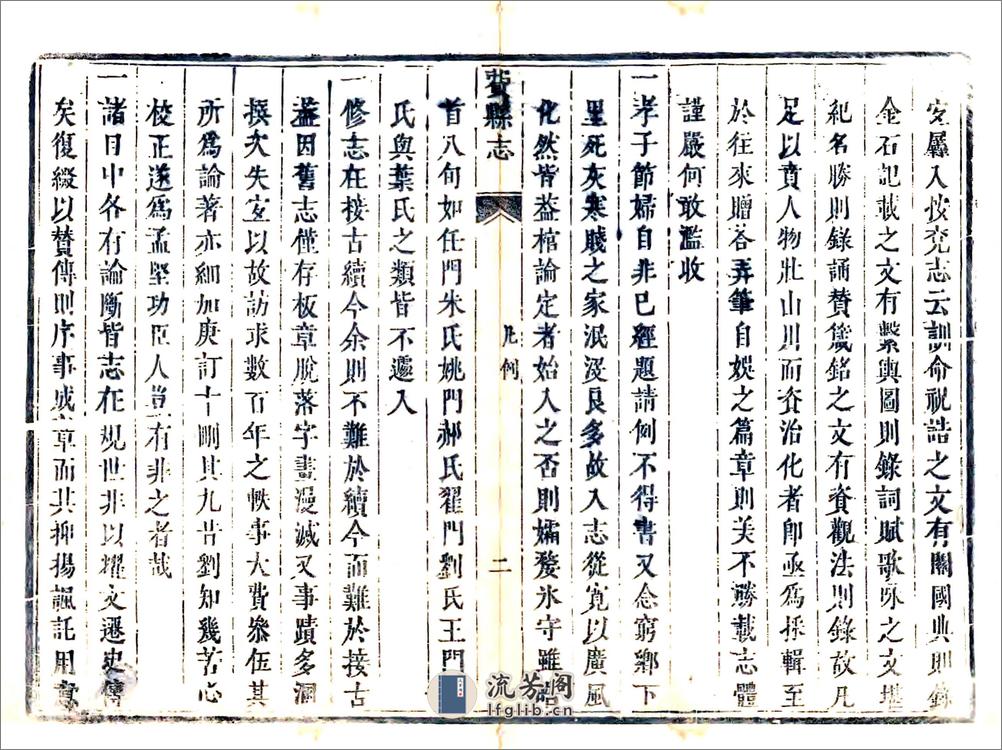 安屬入按兗志云訓命祝誥之文有關國典則錄
金石記載之文有繫輿圖則錄詞賦歌咏之文堪
紀名勝則錄誦贊箴銘之文有資觀法則錄故凡
足以賁人物壯山川而資治化者卽亟爲採輯至
於往來贈答弄筆自娛之篇章則美不勝載志體
謹嚴何敢濫收
一孝子節婦自非已經題請例不得書又念窮鄉下
里死灰寒賤之家泯沒良多故入志從寬以廣風
化然皆蓋棺論定者始入之否則孀嫠氷守雖
費縣志
凡例
二
首八旬如任門朱氏姚門郝氏翟門劉氏王門
氏與葉氏之類皆不遽入
一修志在接古續今余則不難於續今而難於接古
蓋因舊志僅存板章脫落字畫漫滅又事蹟多漏
撰次失宜以故訪求數百年之軼事大費叅伍其
所爲論著亦細加庚訂十刪其九昔劉知幾苦心
校正遂爲孟堅功臣人豈有非之者哉
一諸目中各有論斷皆志在規世非以擢文遷史傳
矣復綴以贊傳則序事成章而其抑揚諷託用
流芳閣
lfglib.cn